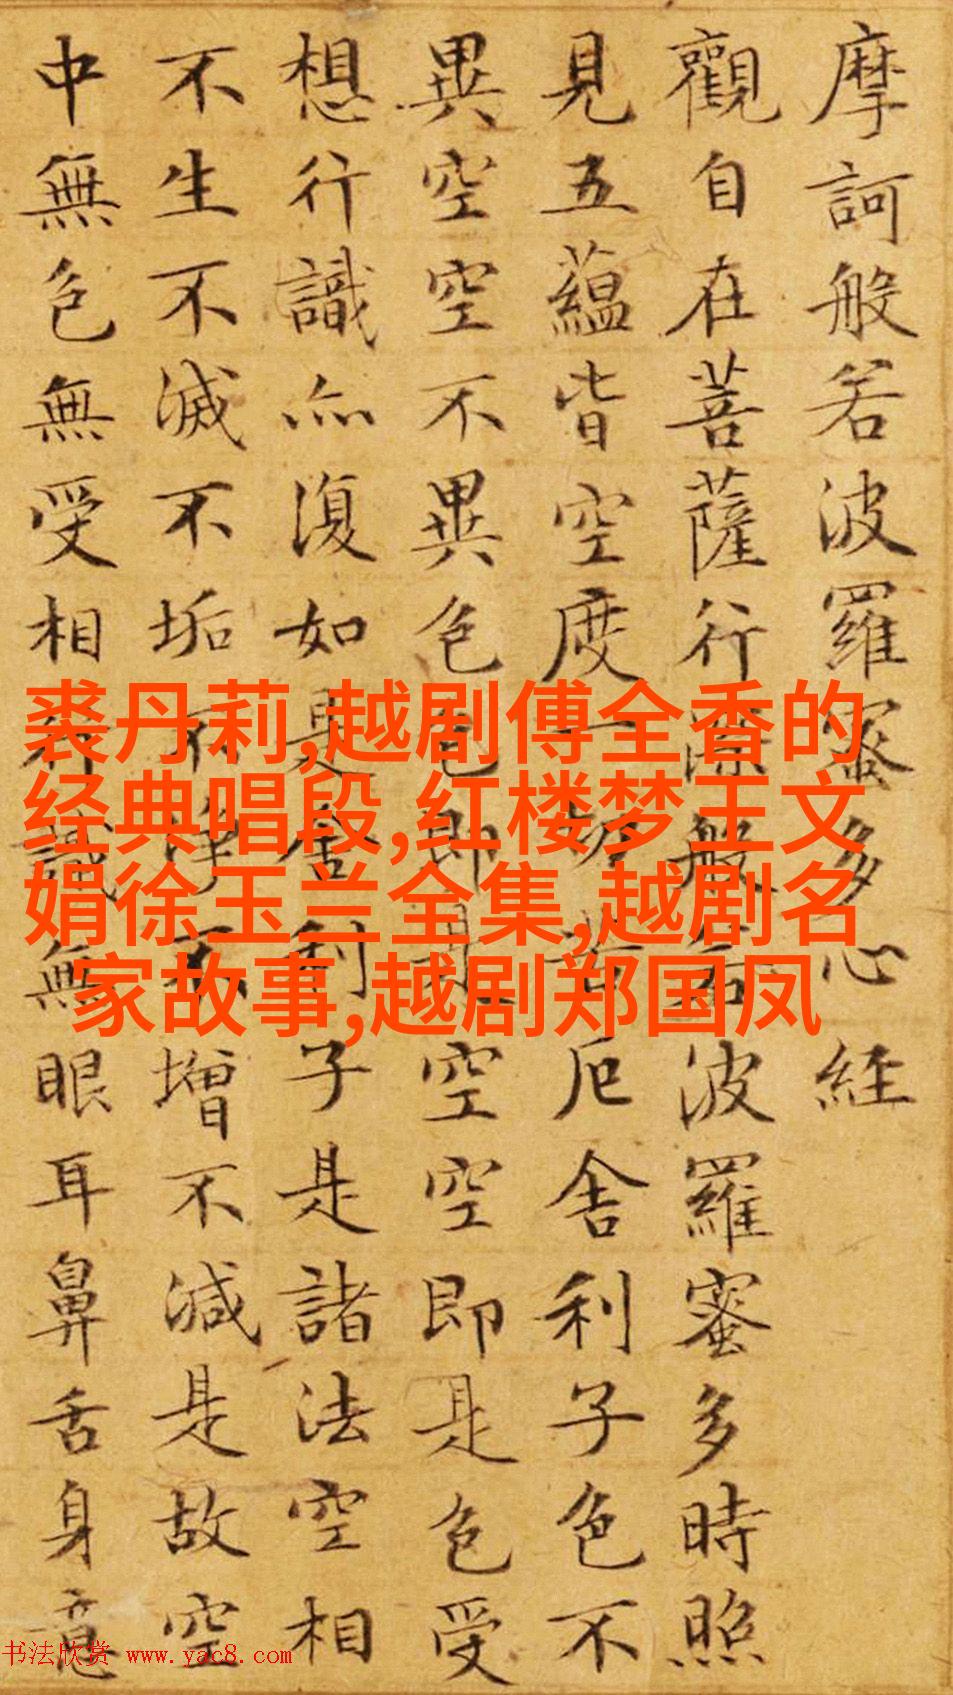 摩訶般若波羅蜜多心経
觀自在菩薩行深般若波羅蜜多時照
見五蘊皆空度一切苦厄舍利子色不
異空空不異色色即是空空即是色受
想行識亦復如是舍利子是諸法空相
不生不滅不垢不淨不增不減是故空
中無色無受相行識無眼耳鼻舌身意
裘丹莉,越剧傅全香的
经典唱段,红楼梦王文
娟徐玉兰全集,越剧名
家故事,越剧郑国凤
书法欣赏 www.yac8.com